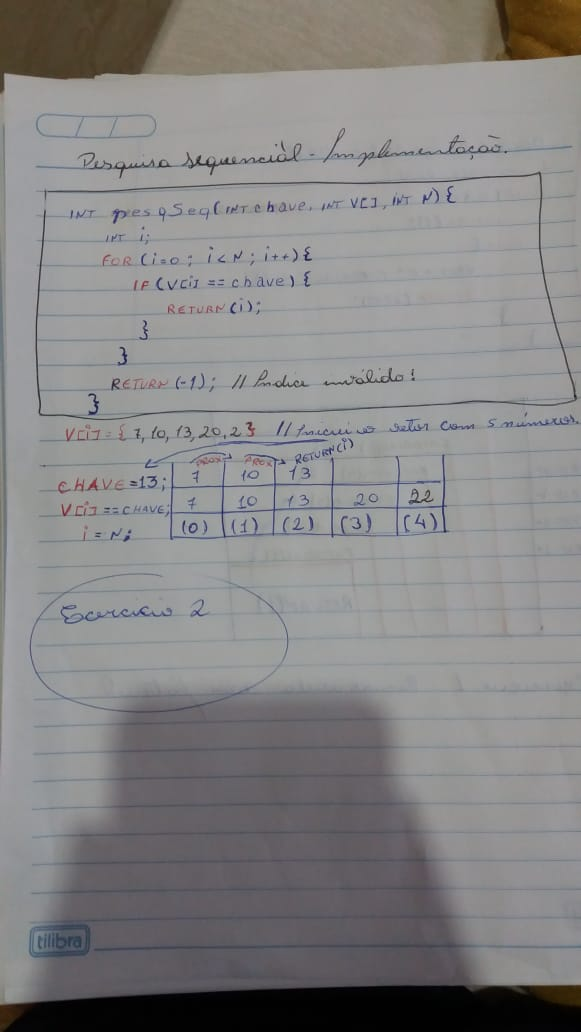 Pesquisa sequencial - Implementação.
INT pesqSeq(INT chave, INT V[], INT N){
INT i;
FOR (i=0; i<N; i++){
IF (V[i] == chave) {
RETURN(i);
}
}
RETURN (-1); // Indice inválido!
}
V[i] = { 7, 10, 13, 20, 2 } // vetor com 5 números.
PROX PROX RETURN(i)
CHAVE=13; 7 10 13
V[i]==CHAVE; 7 10 13 20 22
i = N; (0) (1) (2) (3) (4)
Exercicio 2
tilibra